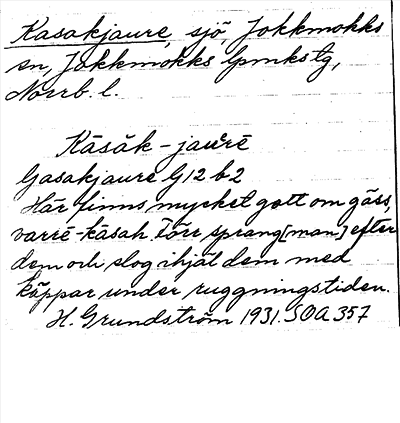 Kasakjaure, sjö, Jokkmokks
sn, Jokkmokks lpmkstg,
Norrb. l.
Kāsăk-jau͗rē
Gasakjaure G12 b2
Här finns mycket gott om gäss,
varrē-kāsah. Förr sprang [man] efter
dem och slog ihjäl dem med
käppar under ruggningstiden.
H. Grundström 1931. SOA 357